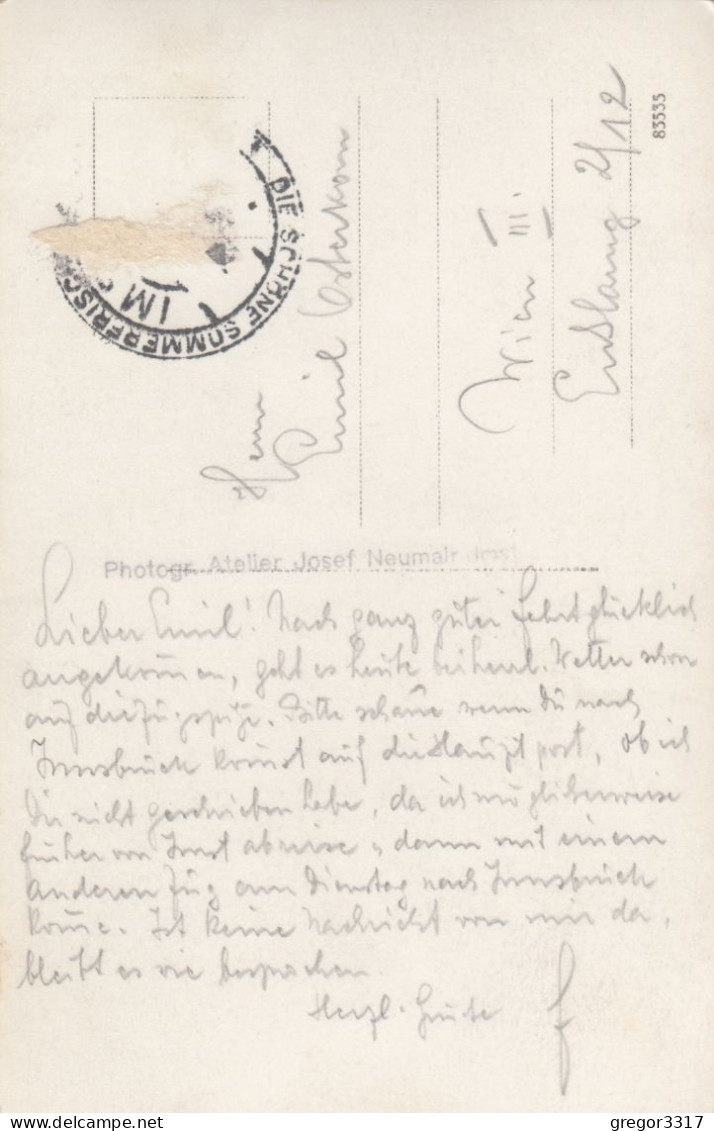 DIE SCHÖNE SOMMERFRISC
IM
Herrn
Emil Osterkorn
Wien III
2/12
83535
Photogr. Atelier Josef Neumair Imst
Lieber Emil! Nach ganz guter Fahrt glücklich
angekommen, geht es heute bei herrl. Wetter schon
auf die Zugspitze. Bitte schaue wenn Du nach
Innsbruck kommst auf die Hauptpost, ob ich
Dir nicht geschrieben habe, da ich möglicherweise
früher von Imst abreise u. dann mit einem
anderen Zug am Dienstag nach Innsbruck
komme. Ist keine Nachricht von mir da,
bleibt es wie besprochen.
Herzl. Grüße
F
gregor3317